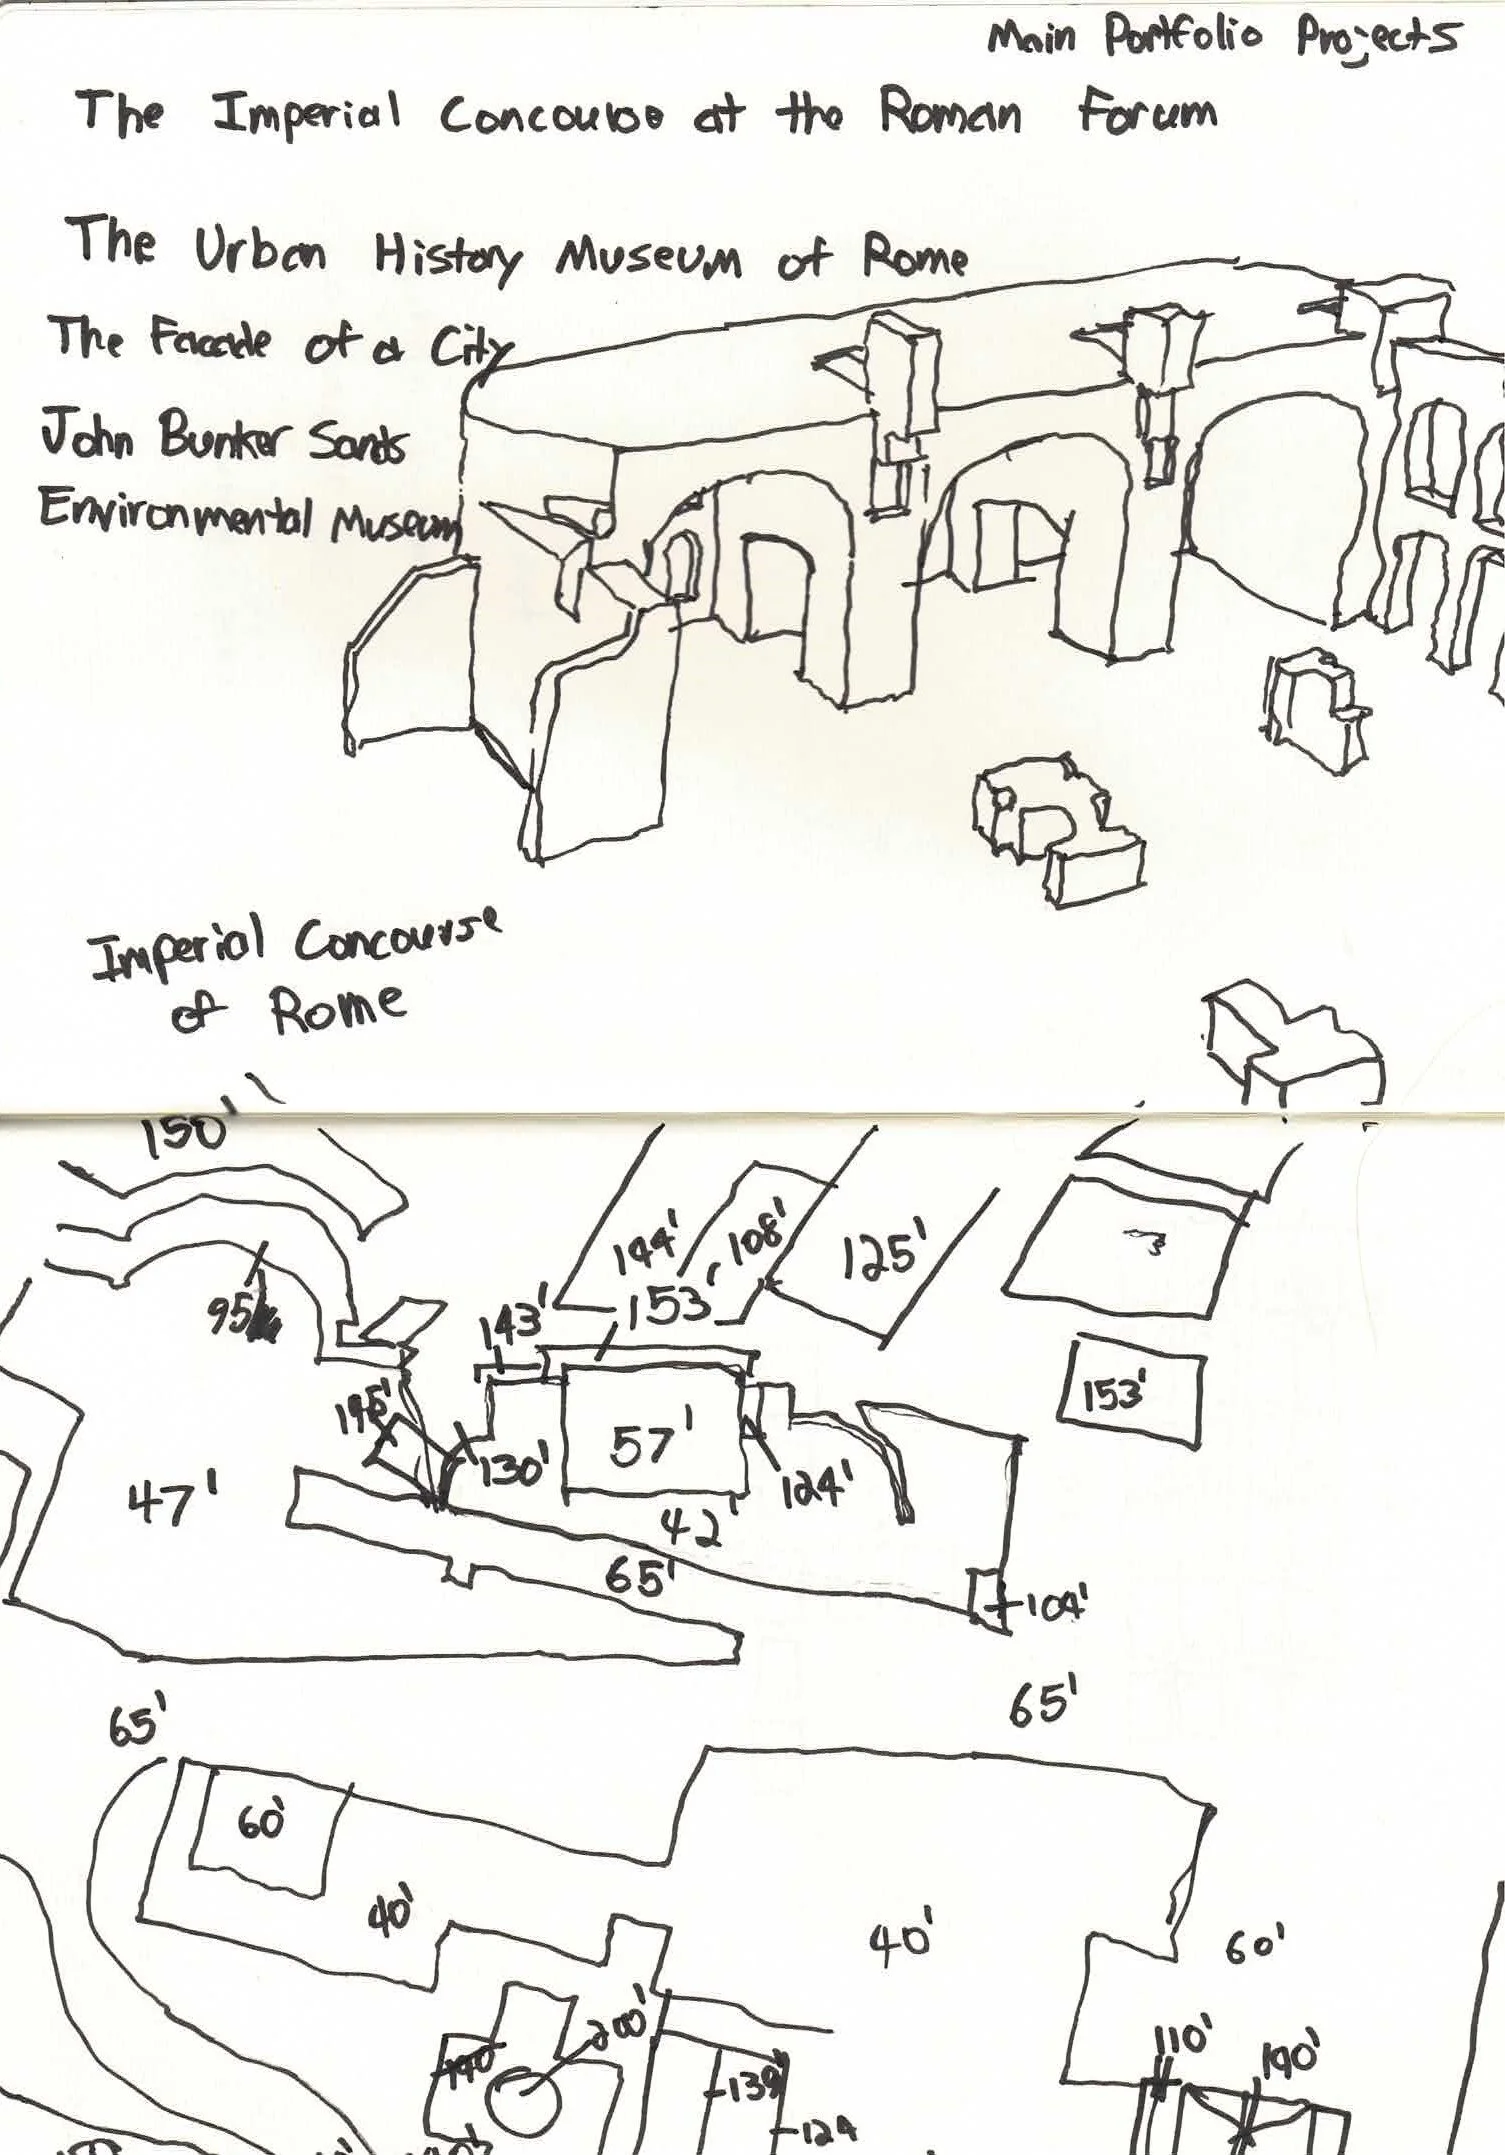 Main Portfolio Projects
The Imperial Concourse at the Roman Forum
The Urban History Museum of Rome
The Facade of a City
John Bunker Sands
Environmental Museum
Imperial Concourse
of Rome
150'
144'
108'
125'
153'
143'
95
153'
57'
130'
124'
47'
42'
65'
104'
65'
65'
60'
40'
40'
60'
200'
110'
190'
139'
124